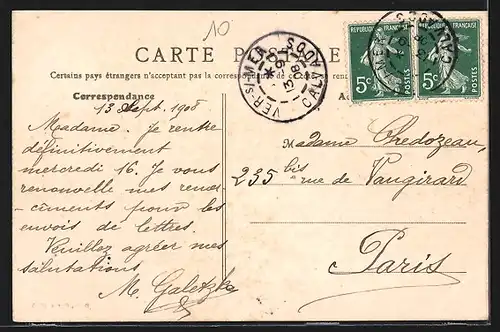 10
CARTE POSTALE
Certains pays étrangers n'acceptant pas la correspondance
Correspondance
13 Sept. 1908
Madame. Je rentre
définitivement
mercredi 16. Je vous
renouvelle mes remer-
ciments pour les
envois de lettres.
Veuillez agréer mes
salutations
M. Galetzka
VER-S-MER
CALVADOS
13 08
RÉPUBLIQUE FRANÇAISE
5c
POSTES
RÉPUBLIQUE FRANÇAISE
5c
POSTES
CALVADOS
Madame Chedozeau,
235 bis rue de Vaugirard
Paris